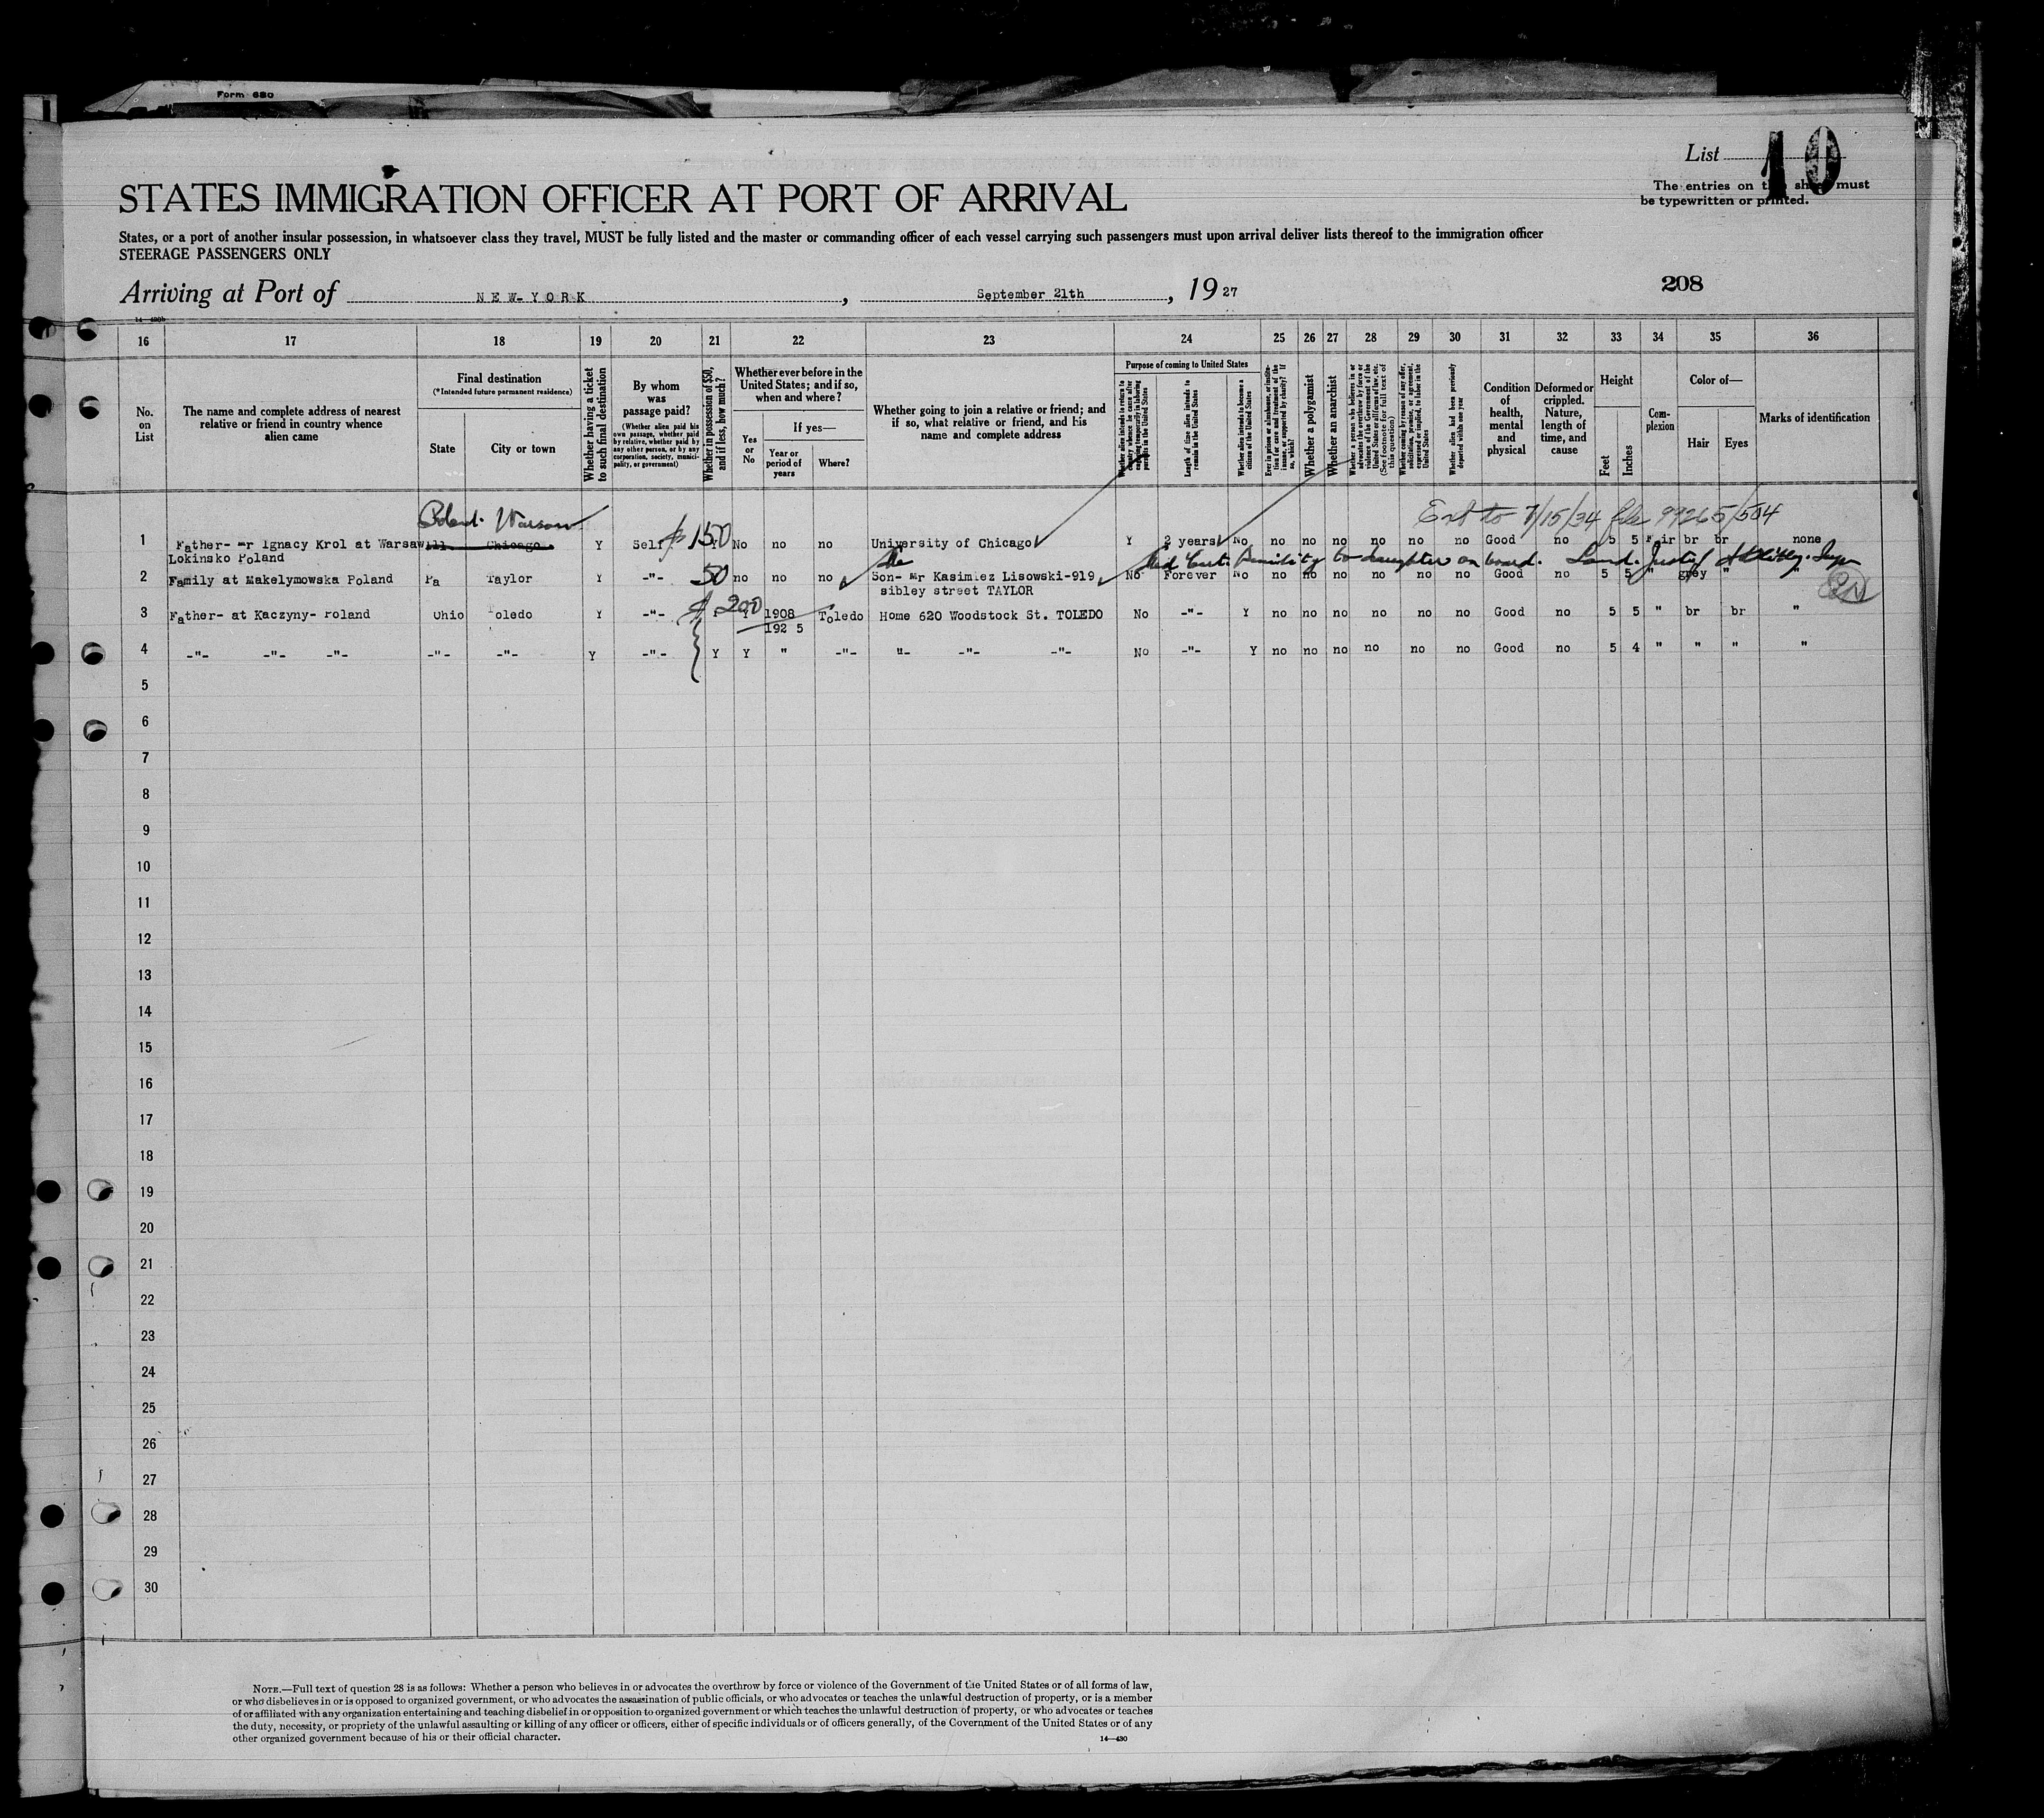 Form 630
List 10
The entries on this sheet must
be typewritten or printed.
STATES IMMIGRATION OFFICER AT PORT OF ARRIVAL
States, or a port of another insular possession, in whatsoever class they travel, MUST be fully listed and the master or commanding officer of each vessel carrying such passengers must upon arrival deliver lists thereof to the immigration officer
STEERAGE PASSENGERS ONLY
Arriving at Port of NEW-YORK, September 21th, 1927
208
16 17 18 19 20 21 22 23 24 25 26 27 28 29 30 31 32 33 34 35 36
No. on List
The name and complete address of nearest relative or friend in country whence alien came
Final destination
(*Intended future permanent residence)
State
City or town
Whether having a ticket to such final destination
By whom was passage paid?
(Whether alien paid his own passage, whether paid by relative, whether paid by any other person, or by any corporation, society, municipality, or government)
Whether in possession of $50, and if less, how much?
Whether ever before in the United States; and if so, when and where?
Yes or No
If yes—
Year or period of years
Where?
Whether going to join a relative or friend; and if so, what relative or friend, and his name and complete address
Purpose of coming to United States
Whether alien intends to return to country whence he came after engaging temporarily in laboring pursuits in the United States
Length of time alien intends to remain in the United States
Whether alien intends to become a citizen of the United States
Ever in prison or almshouse, or institution for care and treatment of the insane, or supported by charity? If so, which?
Whether a polygamist
Whether an anarchist
Whether a person who believes in or advocates the overthrow by force or violence of the Government of the United States or all forms of law, etc. (See footnote for full text of this question)
Whether coming by reason of any offer, solicitation, promise, or agreement, expressed or implied, to labor in the United States
Whether alien had been previously deported within one year
Condition of health, mental and physical
Deformed or crippled. Nature, length of time, and cause
Height
Feet
Inches
Complexion
Color of—
Hair
Eyes
Marks of identification
Poland. Warsaw
Ext to 7/15/34 file 99265/504
1 Father- mr Ignacy Krol at Warsaw Ill Chicago Y Self $150 Y No no no University of Chicago Y 2 years No no no no no no no Good no 5 5 Fair br br none
Lokinsko Poland
Med Cert. Senility to daughter on board. Land.
2 Family at Makelymowska Poland Pa Taylor Y -"- 50 no no no Son- Mr Kasimiez Lisowski-919 No Forever No no no no no no no Good no 5 5 " grey " "
sibley street TAYLOR
3 Father- at Kaczyny- Poland Ohio Toledo Y -"- $200 Y 1908 Toledo Home 620 Woodstock St. TOLEDO No -"- Y no no no no no no Good no 5 5 " br br "
1925
4 -"- -"- -"- -"- -"- Y -"- Y Y " -"- "- -"- -"- No -"- Y no no no no no no Good no 5 4 " " " "
5
6
7
8
9
10
11
12
13
14
15
16
17
18
19
20
21
22
23
24
25
26
27
28
29
30
NOTE.—Full text of question 28 is as follows: Whether a person who believes in or advocates the overthrow by force or violence of the Government of the United States or of all forms of law,
or who disbelieves in or is opposed to organized government, or who advocates the assassination of public officials, or who advocates or teaches the unlawful destruction of property, or is a member
of or affiliated with any organization entertaining and teaching disbelief in or opposition to organized government or which teaches the unlawful destruction of property, or who advocates or teaches
the duty, necessity, or propriety of the unlawful assaulting or killing of any officer or officers, either of specific individuals or of officers generally, of the Government of the United States or of any
other organized government because of his or their official character.
14—430